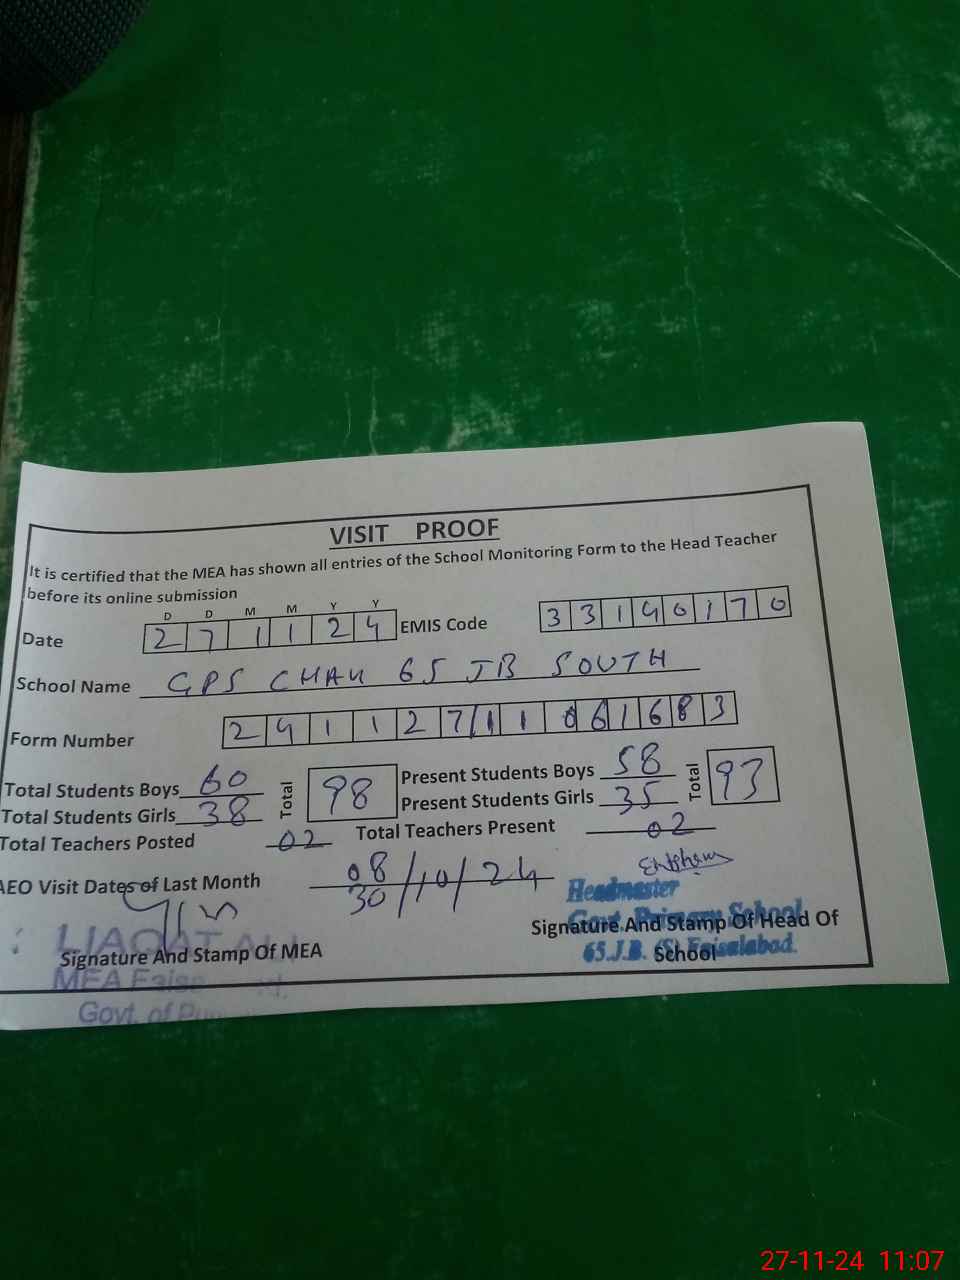 VISIT PROOF
It is certified that the MEA has shown all entries of the School Monitoring Form to the Head Teacher
before its online submission
D D M M Y Y
Date 2 7 1 1 2 4 EMIS Code 3 3 1 4 0 1 7 0
School Name GPS CHAK 65 JB SOUTH
Form Number 2 4 1 1 2 7 / 1 1 0 6 1 6 8 3
Total Students Boys 60 Total 98 Present Students Boys 58 Total 93
Total Students Girls 38 Present Students Girls 35
Total Teachers Posted 02 Total Teachers Present 02
AEO Visit Dates of Last Month 08/30/10/24
Headmaster
Govt. Primary School
65.J.B. (S) Faisalabad.
Signature And Stamp Of Head Of
School
LIAQAT ALI
Signature And Stamp Of MEA
MEA
Govt. of
27-11-24 11:07